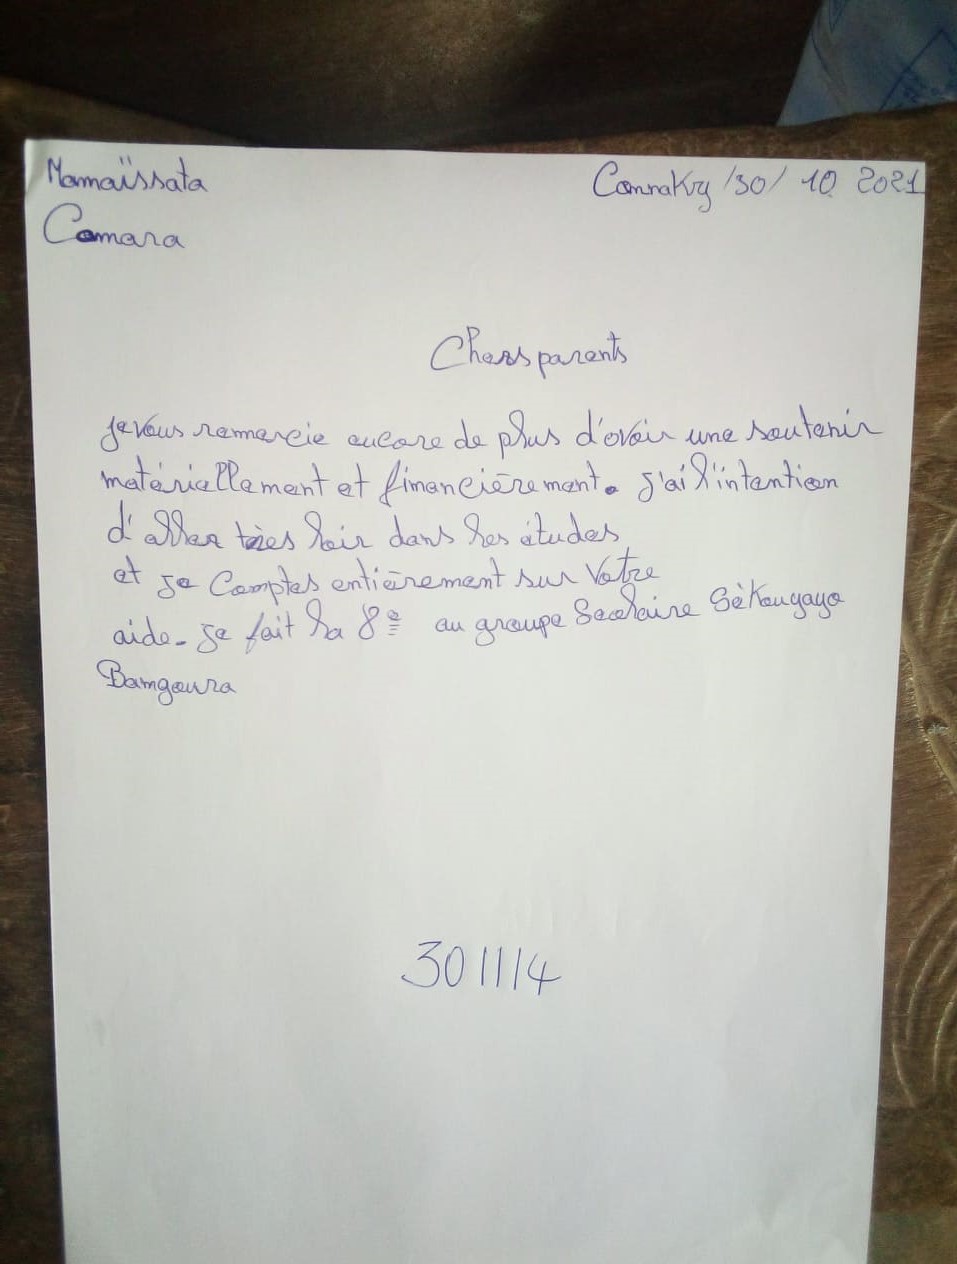 Mamaïssata
Camara
Connakry /30/ 10 2021
Chers parents
je vous remercie encore de plus d'avoir une soutenir
matériellement et financièrement. j'ai l'intention
d'aller très loir dans les études
et je Comptes entièrement sur Votre
aide. je fait la 8e au groupe Scolaire Sèkouyaya
Bamgoura
301114